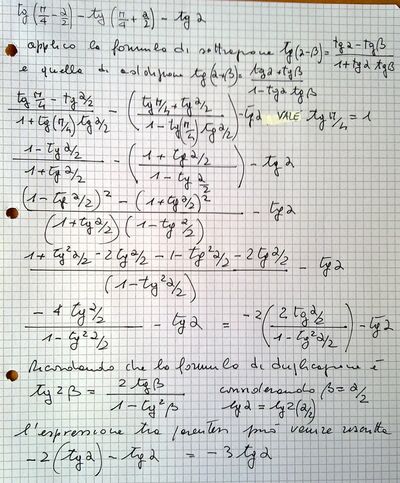 tg(π/4 - α/2) - tg(π/4 + α/2) - tg α
applico la formula di sottrazione tg(α-β) = (tg α - tg β)/(1 + tg α tg β)
e quella di addizione tg(α+β) = (tg α + tg β)/(1 - tg α tg β)
(tg π/4 - tg α/2)/(1 + tg(π/4) tg α/2) - ((tg π/4 + tg α/2)/(1 - tg(π/4) tg α/2)) - tg α VALE tg π/4 = 1
(1 - tg α/2)/(1 + tg α/2) - ((1 + tg α/2)/(1 - tg α/2)) - tg α
((1 - tg α/2)² - (1 + tg α/2)²)/((1 + tg α/2)(1 - tg α/2)) - tg α
(1 + tg² α/2 - 2 tg α/2 - 1 - tg² α/2 - 2 tg α/2)/(1 - tg² α/2) - tg α
(- 4 tg α/2)/(1 - tg² α/2) - tg α = -2((2 tg α/2)/(1 - tg² α/2)) - tg α
Ricordando che la formula di duplicazione è
tg 2β = (2 tg β)/(1 - tg² β) considerando β = α/2
tg α = tg 2(α/2)
l'espressione tra parentesi può venire riscritta
-2(tg α) - tg α = -3 tg α